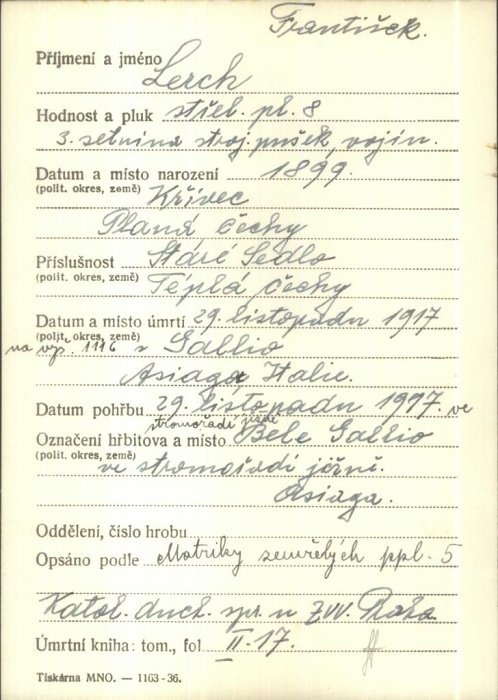 František.
Příjmení a jméno Lerch
Hodnost a pluk střel. pl. 8
3. setnina stroj. pušek, vojín.
Datum a místo narození 1899.
(polit. okres, země) Křivec
Planá Čechy
Příslušnost Staré Sedlo
(polit. okres, země) Teplá Čechy
Datum a místo úmrtí 29. listopadu 1917
(polit. okres, země)
na vp. 1116 s Gallio
Asiaga Italie.
Datum pohřbu 29. listopadu 1917. ve
stromořadí jižně
Označení hřbitova a místo Bele Gallio
(polit. okres, země)
ve stromořadí jižně.
Asiaga.
Oddělení, číslo hrobu
Opsáno podle Matriky zemřelých ppl. 5
Katol. duch. spr. u ZVV. Praha
Úmrtní kniha: tom., fol II-17.
Tiskárna MNO. — 1163-36.